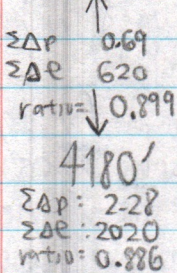 ΣΔp 0.69
ΣΔe 620
ratio= 0.899
4180'
ΣΔp: 2.28
ΣΔe: 2020
ratio: 0.886